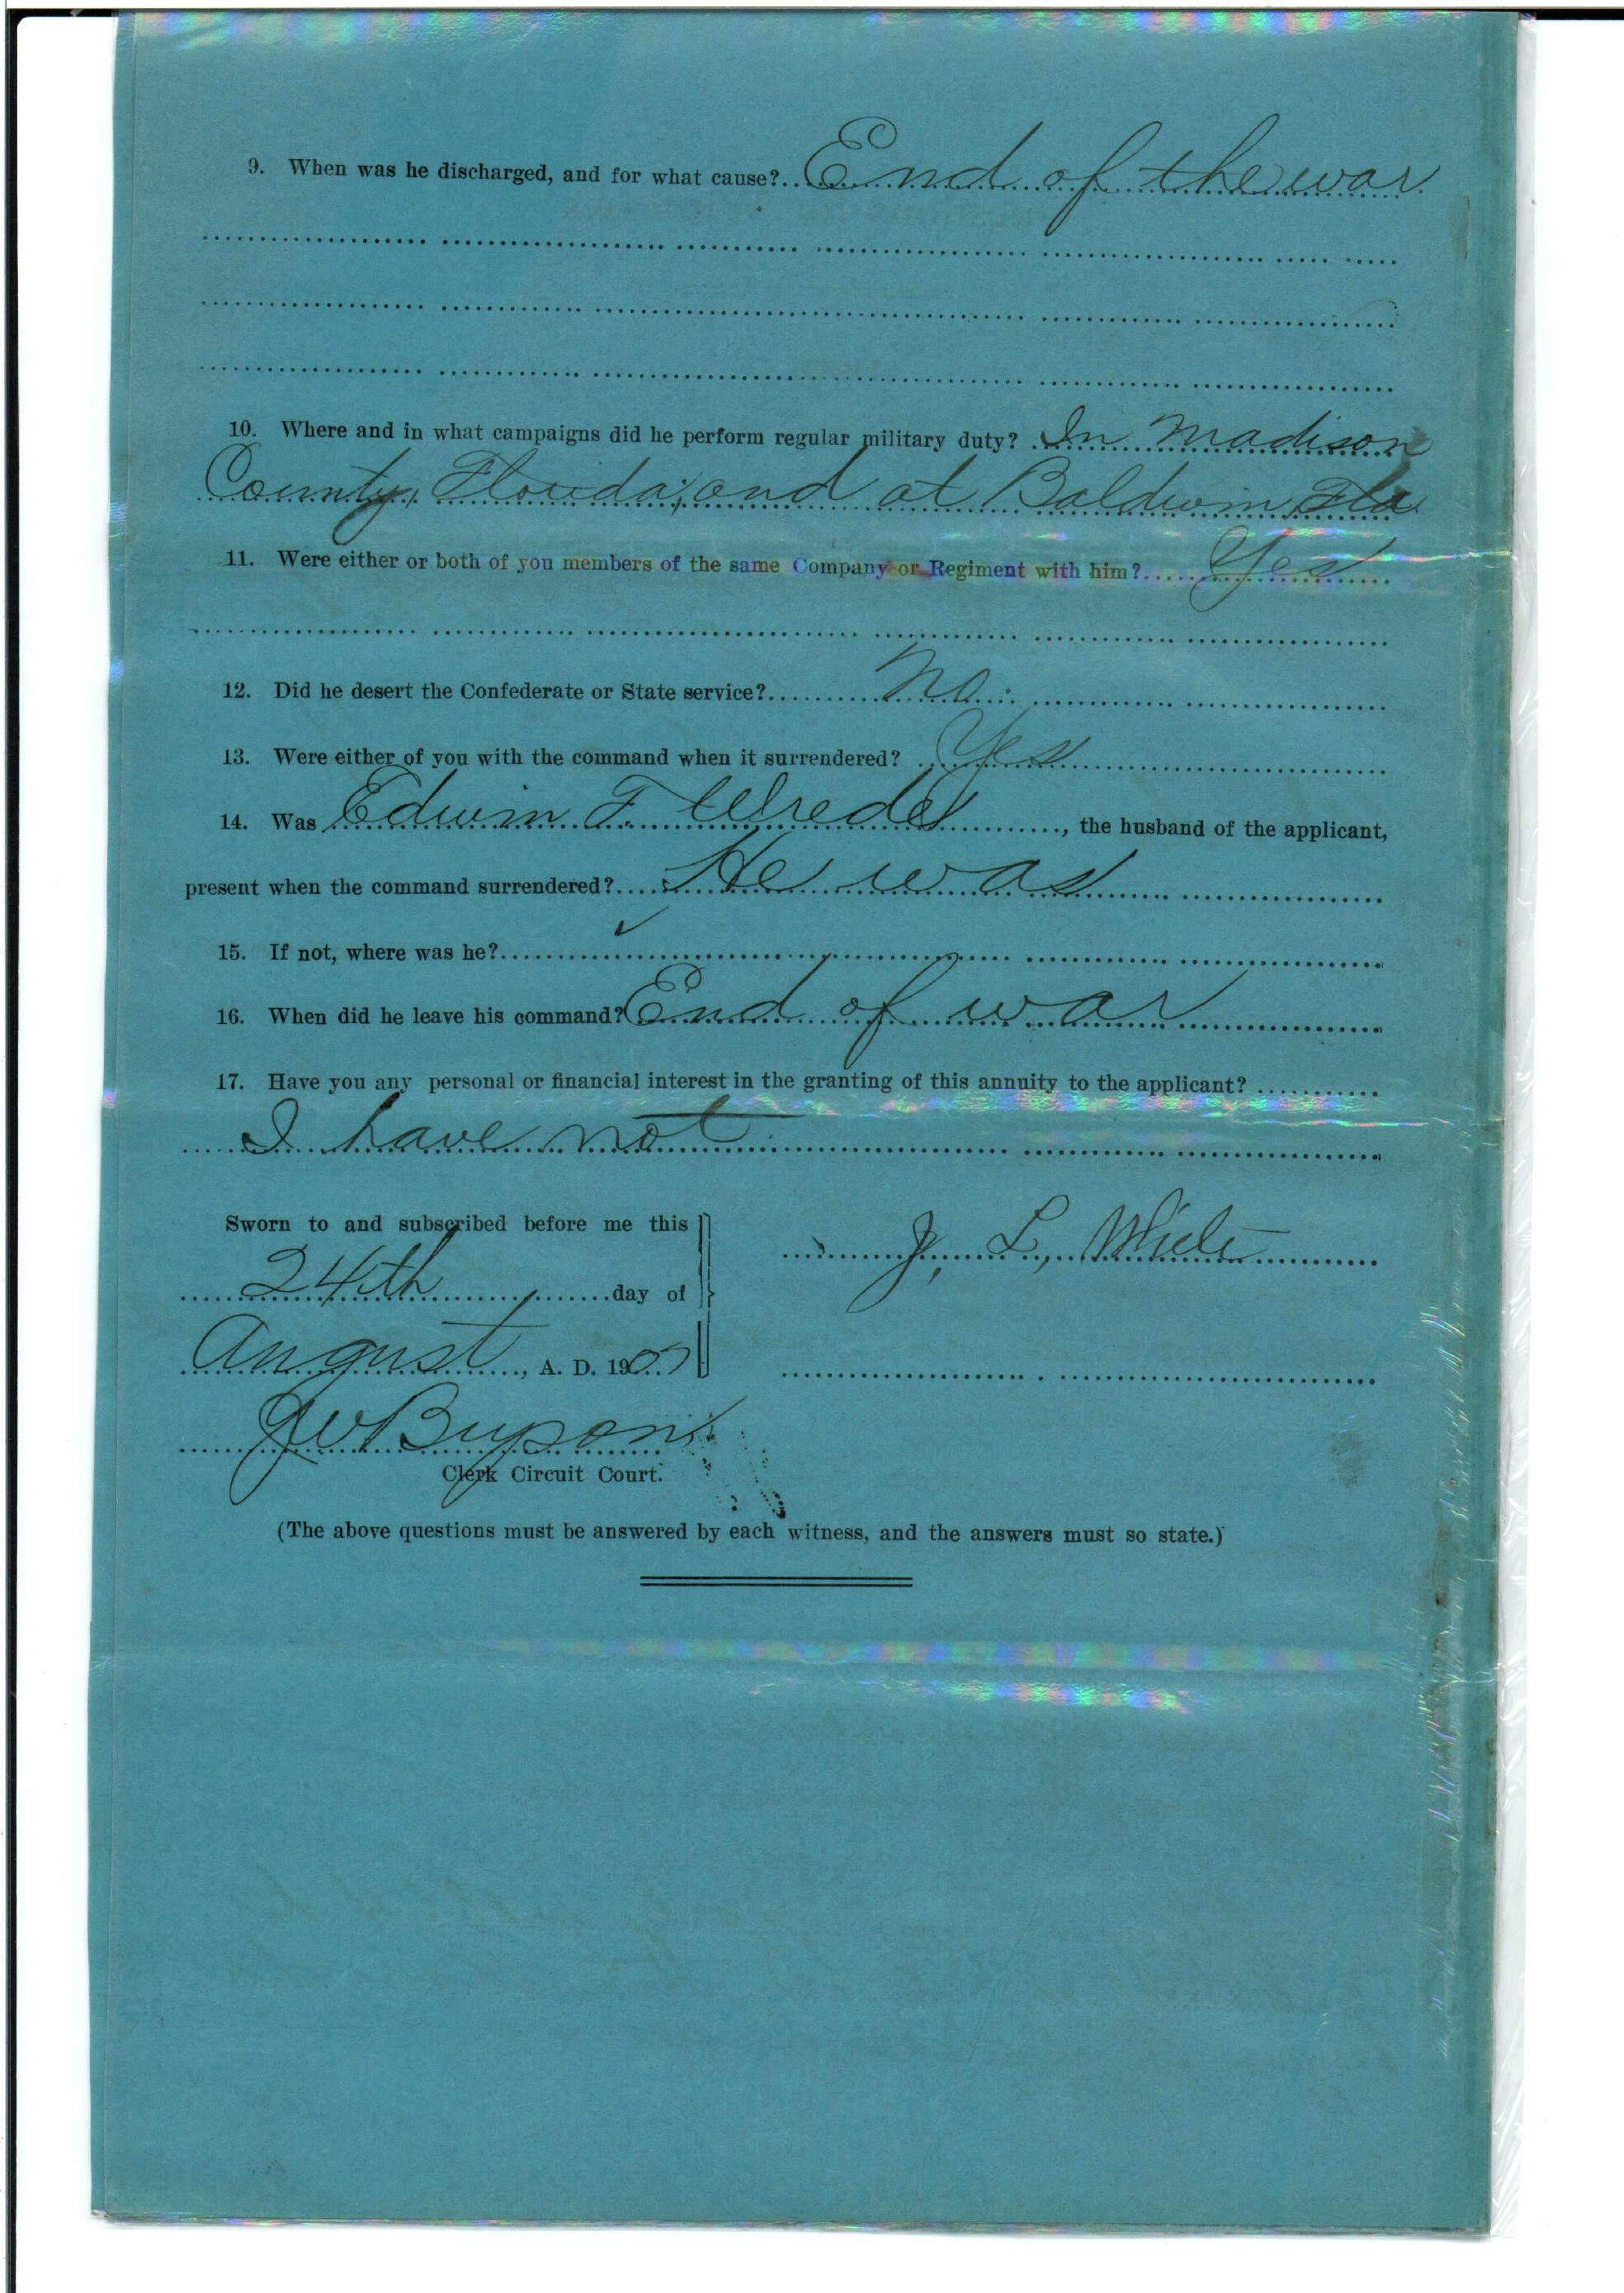 9. When was he discharged, and for what cause? End of the war
10. Where and in what campaigns did he perform regular military duty? In Madison
County, Florida, and at Baldwin Fla
11. Were either or both of you members of the same Company or Regiment with him? Yes
12. Did he desert the Confederate or State service? No.
13. Were either of you with the command when it surrendered? Yes
14. Was Edwin F. , the husband of the applicant,
present when the command surrendered? He was
15. If not, where was he?
16. When did he leave his command? End of war
17. Have you any personal or financial interest in the granting of this annuity to the applicant?
I have not
Sworn to and subscribed before me this
J. L.
24th day of
August, A. D. 190
Clerk Circuit Court.
(The above questions must be answered by each witness, and the answers must so state.)